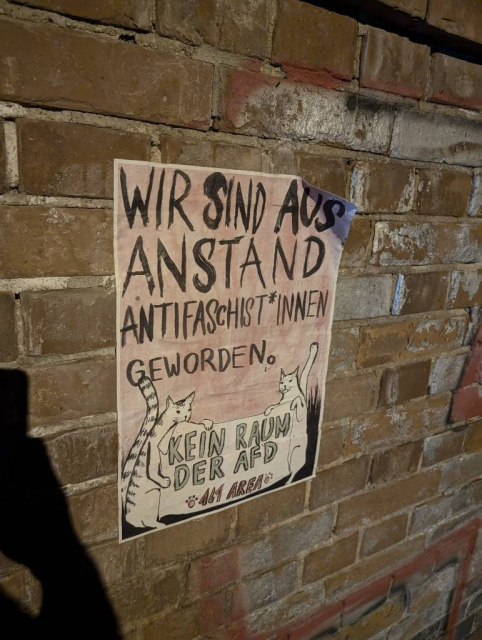 WIR SIND AUS
ANSTAND
ANTIFASCHIST*INNEN
GEWORDEN.
KEIN RAUM
DER AFD
161 AREA